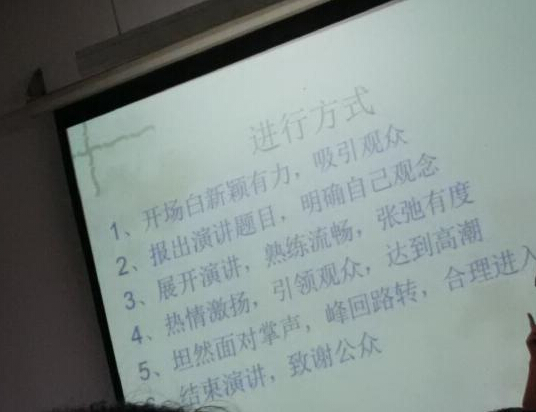 进行方式
1、开场白新颖有力，吸引观众
2、报出演讲题目，明确自己观念
3、展开演讲，熟练流畅，张弛有度
4、热情激扬，引领观众，达到高潮
5、坦然面对掌声，峰回路转，合理进入
结束演讲，致谢公众